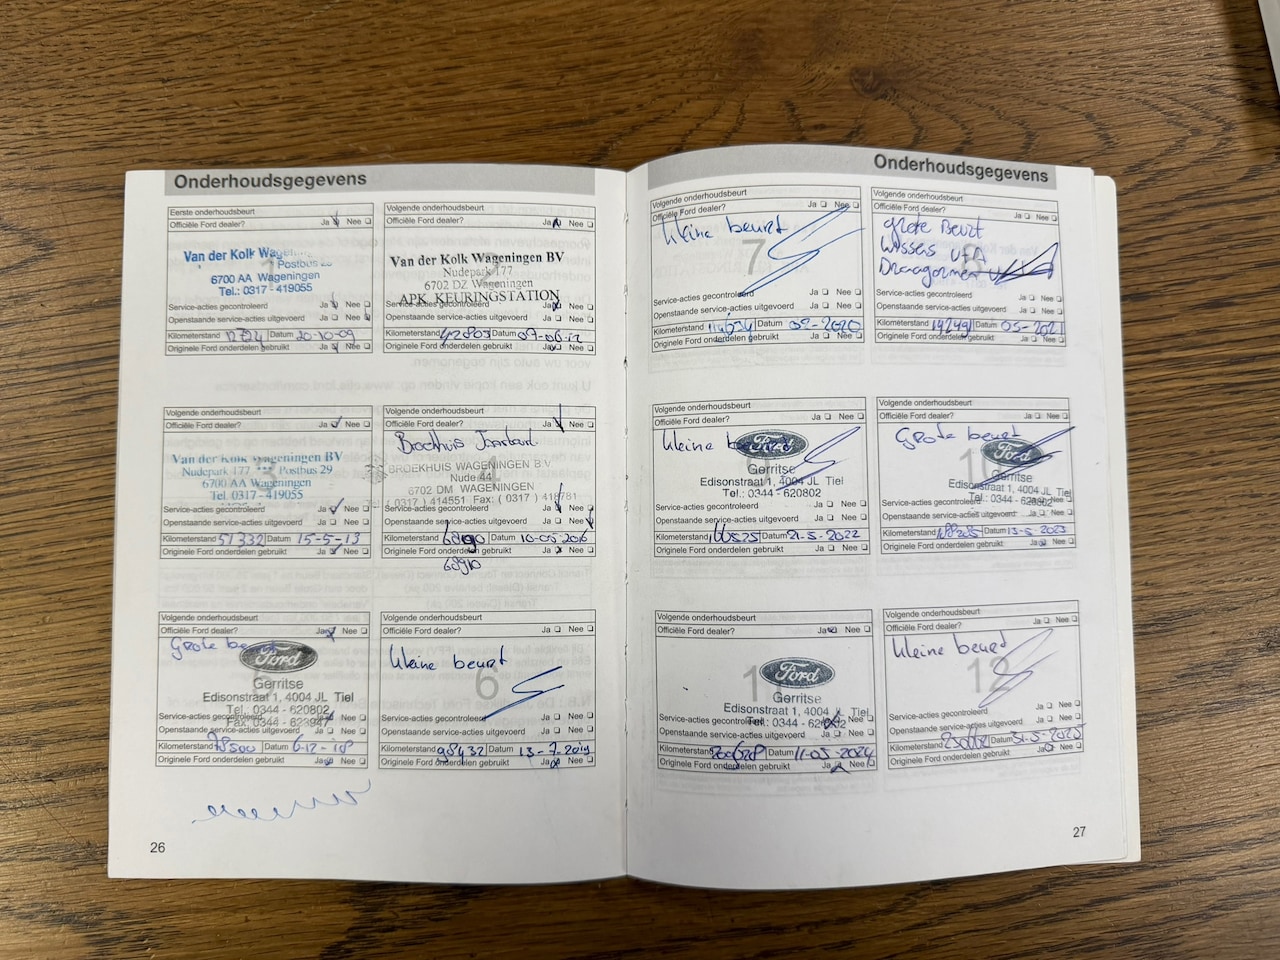 Onderhoudsgegevens
Eerste onderhoudsbeurt
Officiële Ford dealer? Ja Nee
Van der Kolk Wagenin
Postbus
6700 AA Wageningen
Tel.: 0317 - 419055
Service-acties gecontroleerd Ja Nee
Openstaande service-acties uitgevoerd Ja Nee
Kilometerstand Datum 20-10-09
Originele Ford onderdelen gebruikt Ja Nee
Volgende onderhoudsbeurt
Officiële Ford dealer? Ja Nee
2
Van der Kolk Wageningen BV
Nudepark 177
6702 DZ Wageningen
APK. KEURINGSTATION
Service-acties gecontroleerd Ja Nee
Openstaande service-acties uitgevoerd Ja Nee
Kilometerstand 42803 Datum 07-06-12
Originele Ford onderdelen gebruikt Ja Nee
Volgende onderhoudsbeurt
Officiële Ford dealer? Ja Nee
3
Van der Kolk Wageningen BV
Nudepark 177 Postbus 29
6700 AA Wageningen
Tel. 0317 - 419055
Service-acties gecontroleerd Ja Nee
Openstaande service-acties uitgevoerd Ja Nee
Kilometerstand 51332 Datum 15-5-13
Originele Ford onderdelen gebruikt Ja Nee
Volgende onderhoudsbeurt
Officiële Ford dealer? Ja Nee
4
BROEKHUIS WAGENINGEN B.V.
Nude 44
6702 DM WAGENINGEN
( 0317 ) 414551 Fax: ( 0317 ) 418781
Service-acties gecontroleerd Ja Nee
Openstaande service-acties uitgevoerd Ja Nee
Kilometerstand Datum 10-05-2016
Originele Ford onderdelen gebruikt Ja Nee
68910
Volgende onderhoudsbeurt
Officiële Ford dealer? Ja Nee
Grote beurt
Ford
Gerritse
Edisonstraat 1, 4004 JL Tiel
Tel.: 0344 - 620802
Fax: 0344 - 623947
Service-acties gecontroleerd Ja Nee
Openstaande service-acties uitgevoerd Ja Nee
Kilometerstand 78500 Datum 6-12-18
Originele Ford onderdelen gebruikt Ja Nee
Volgende onderhoudsbeurt
Officiële Ford dealer? Ja Nee
kleine beurt
6
Service-acties gecontroleerd Ja Nee
Openstaande service-acties uitgevoerd Ja Nee
Kilometerstand 98432 Datum 13-7-2019
Originele Ford onderdelen gebruikt Ja Nee
26
Onderhoudsgegevens
Volgende onderhoudsbeurt
Officiële Ford dealer? Ja Nee
kleine beurt
7
Service-acties gecontroleerd
Openstaande service-acties uitgevoerd Ja Nee
Kilometerstand Datum 09-2020
Originele Ford onderdelen gebruikt Ja Nee
Volgende onderhoudsbeurt
Officiële Ford dealer? Ja Nee
grote Beurt
8
Wissers V+A
Service-acties gecontroleerd Ja Nee
Openstaande service-acties uitgevoerd Ja Nee
Kilometerstand Datum 05-2021
Originele Ford onderdelen gebruikt Ja Nee
Volgende onderhoudsbeurt
Officiële Ford dealer? Ja Nee
kleine beurt
Ford
9
Gerritse
Edisonstraat 1, 4004 JL Tiel
Tel.: 0344 - 620802
Service-acties gecontroleerd
Openstaande service-acties uitgevoerd Ja Nee
Kilometerstand 166525 Datum 21-5-2022
Originele Ford onderdelen gebruikt Ja Nee
Volgende onderhoudsbeurt
Officiële Ford dealer? Ja Nee
Grote beurt
Ford
10
Gerritse
Edisonstraat 1, 4004 JL Tiel
Tel.: 0344 - 620802
Service-acties gecontroleerd
Openstaande service-acties uitgevoerd Ja Nee
Kilometerstand Datum 13-5-2023
Originele Ford onderdelen gebruikt Ja Nee
Volgende onderhoudsbeurt
Officiële Ford dealer? Ja Nee
Ford
11
Gerritse
Edisonstraat 1, 4004 JL Tiel
Tel.: 0344 - 620802
Service-acties gecontroleerd Ja Nee
Openstaande service-acties uitgevoerd
Kilometerstand 200628 Datum 11-05-2024
Originele Ford onderdelen gebruikt Ja Nee
Volgende onderhoudsbeurt
Officiële Ford dealer? Ja Nee
kleine beurt
12
Service-acties gecontroleerd Ja Nee
Openstaande service-acties uitgevoerd Ja Nee
Kilometerstand Datum 31-5-2025
Originele Ford onderdelen gebruikt Ja Nee
27